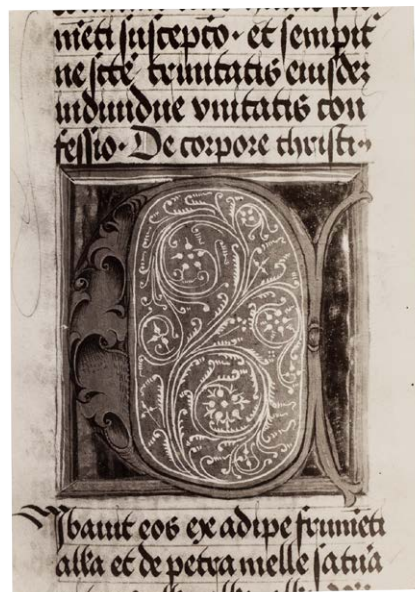 meti suscepto · et sempit
ne scte trinitatis eiusdez
indiuidue vnitatis con
fessio · De corpore christi
C
ibauit eos ex adipe frumeti
alla et de petra melle satua